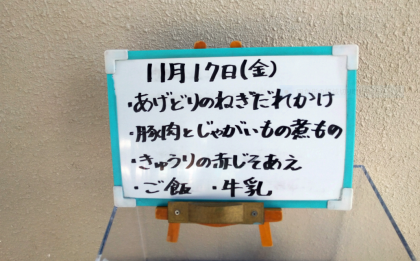 11月17日(金)
・あげどりのねぎだれかけ
・豚肉とじゃがいもの煮もの
・きゅうりの赤じそあえ
・ご飯 ・牛乳